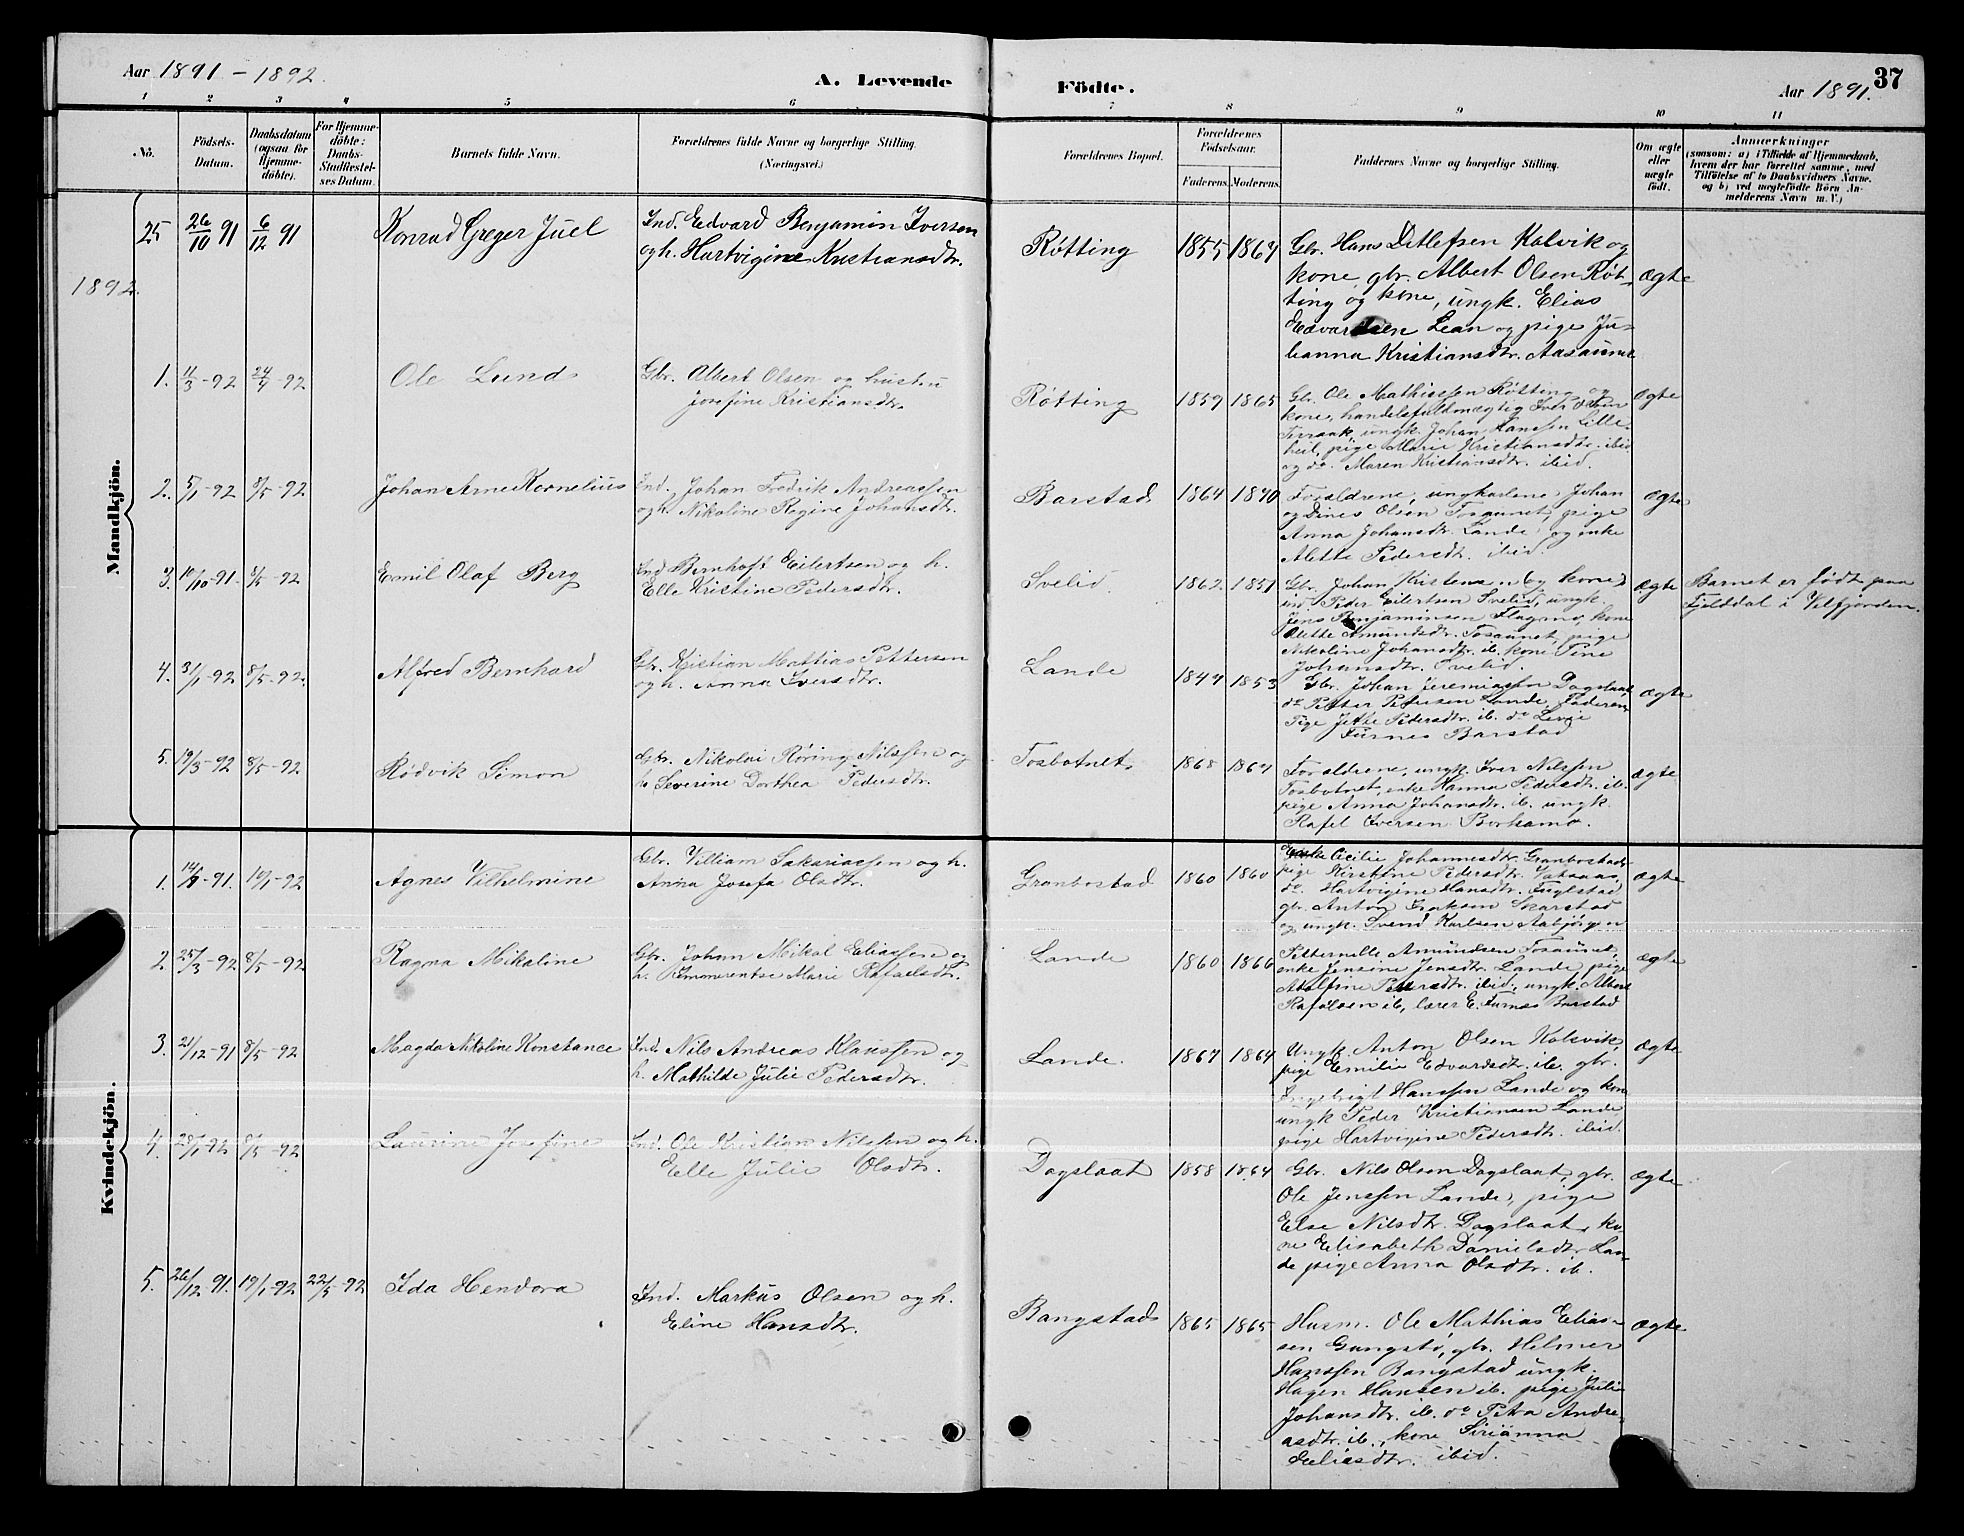 Aar 1891 – 1892.
A. Levende
Födte.
Aar 1891.
37
1 2 3 4 5 6 7 8 9 10 11
No.
Födsels-
Datum.
Daabsdatum
(ogsaa for
Hjemme-
döbte).
For Hjemme-
döbte:
Daabs-
Stadfæstel-
ses Datum.
Barnets fulde Navn.
Forældrenes fulde Navne og borgerlige Stilling.
(Næringsvei.)
Forældrenes Bopæl.
Forældrenes
Födselsaar.
Faderens. Moderens.
Faddernes Navne og borgerlige Stilling.
Om ægte
eller
uægte
födt.
Anmærkninger
(saasom: a) i Tilfælde af Hjemmedaab,
hvem der har forrettet samme, med
Tilföielse af to Daabsvidners Navne,
og b) ved uægtefödte Börn An-
melderens Navn m. V.)
Mandkjön.
25 26/10 91 6/12 91 Konrad Greger Juel
Ind. Edvard Benjamin Iversen
og h. Hartvigine Kristiansdtr.
Røtting 1855 1867
Gbr. Hans Ditlefsen Kalvik og
kone, gbr. Albert Olsen Røt-
ting og kone, ungk. Elias
Edvardsen Lean og pige Ju-
lianna Kristiansdtr. Aasaune
ægte
1892.
1. 11/3-92 24/4-92 Ole Lund
Gbr. Albert Olsen og hustru
Josefine Kristiansdtr.
Røtting 1859 1865
Gbr. Ole Mathiassen Røtting og
kone, handelsfuldmægtig Iver Olsen
Terraak, ungk. Johan Hanssen Lille-
heil, pige Marie Kristiansdtr. ibid
og do. Maren Kristiansdtr. ibid.
ægte
2. 5/1-92 8/5-92 Johan Arne Kornelius
Ind. Johan Fredrik Andreassen
og h. Nikoline Regine Johansdtr.
Barstad 1864 1870
Forældrene, ungkarlene Johan
og Dines Olsen Tosaunet, pige
Anna Johansdtr. Lande og enke
Alette Pedersdtr. ibid.
ægte
3. 10/10-91. 8/5-92 Emil Olaf Berg
Ind Bernhoft Eilertsen og h.
Elle Kristine Pedersdtr.
Svelid. 1862. 1851
Gbr. Johan Kristensen og kone,
ind. Peder Eilertsen Svelid, ungk
Jens Benjaminsen Flagmo, kone
Olette Amundsdtr. Tosaunet, pige
Nikoline Johansdtr. ib. kone Tine
Johansdtr. Svelid.
ægte
Barnet er født paa
Fjelddal i Velfjorden.
4. 31/1-92 8/5-92. Alfred Bernhard
Gbr. Kristian Mattias Pettersen
og h. Anna Iversdtr.
Lande 1847 1853
Gbr. Johan Jeremiassen Dagslaat
do Petter Petersen Lande, Faderen
Pige Jette Pedersdtr. ib. do Lovise
Furnes Barstad
ægte
5. 19/3-92 8/5-92 Rødvik Simon
Gbr. Nikolai Røring Nilssen og
h. Severine Dorthea Pedersdtr.
Tosbotnet. 1868 1867
Forældrene, ungk. Iver Nilssen
Tosbotnet, enke Hanna Pedersdtr. ib.
pige Anna Johansdtr. ib. ungk.
Rafel Iversen Borkamo.
ægte
Kvindekjön.
1. 14/9-91. 10/1-92 Agnes Vilhelmine
Gbr. Villiam Sakariassen og h.
Anna Josefa Olsdtr.
Granbostad 1860 1860
Enke Cicilie Johannesdtr. Granbostad
pige Kirstine Pedersdtr. Vatsaas,
do. Hartvigine Hansdtr. Fuglstad
gbr. Anton Isaksen Skarstad
og ungk. Svend Karlsen Aabjørgen
ægte
2. 25/3-92 8/5-92 Ragna Mikaline
Gbr. Johan Mikal Eliassen og
h. Emmerentse Marie Rafaelsdtr.
Lande 1860 1866
Petternille Amundsen Tosaunet,
enke Jensine Jensdtr. Lande, pige
Adolfine Pedersdtr. ibid., ungk. Albert
Rafalsen ib, lærer E. Furnes Barstad
ægte
3. 21/12-91 8/5-92 Magda Nikoline Konstance
Ind. Nils Andreas Klaussen og
h. Mathilde Julie Pedersdtr.
Lande. 1867 1864
Ungk. Anton Olsen Kalvik,
pige Emilie Edvardsdtr. ib. gbr.
Ingebrigt Hanssen Lande og kone
ungk Peder Kristiansen Lande
pige Hartvigine Pedersdtr. ibid.
ægte
4. 28/1-92 8/5-92 Laurine Josefine
Ind. Ole Kristian Nilssen og h.
Elle Julie Olsdtr.
Dagslaat 1858 1864
Gbr. Nils Olsen Dagslaat, gbr.
Ole Jenssen Lande, pige
Else Nilsdtr. Dagslaat, ko-
ne Elisabeth Danielsdtr. Lan-
de pige Anna Olsdtr. ib.
ægte
5. 26/12 91. 19/1-92 22/5-92 Ida Hendora
Ind. Markus Olsen og h.
Eline Hansdtr.
Bangstad 1865 1865
Husm. Ole Mathias Elias-
sen Gangstø, gbr. Helmer
Hanssen Bangstad ungk.
Hagen Hansen ib. pige Julie
Johansdtr. ib. do Petra Andre-
asdtr. ib., kone Sirianna
Eliasdtr. ibid.
ægte